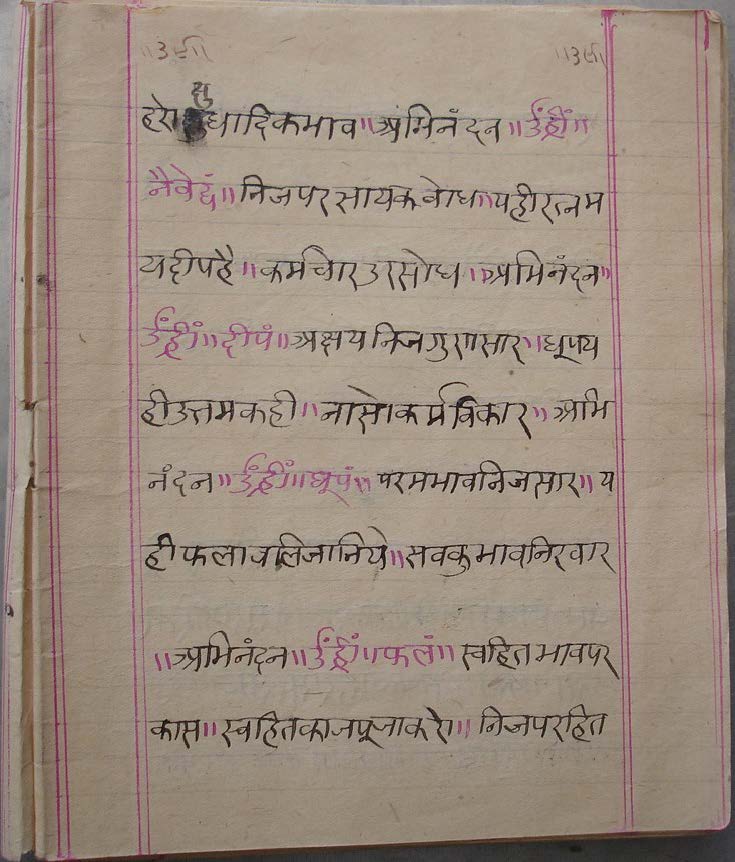 ॥उर्ली॥ ॥उर्ली
क्षु
हरो क्षुधादिकभाव॥अभिनंदन॥उंह्रीं॥
नैवेद्यं॥निजपरसायकवोध॥यहीरत्नम
यदीपहै॥कर्मचारउरसोध॥अभिनंदन॥
उंह्रीं॥दीपं॥अक्षयनिजगुणसार॥धूपय
हीउत्तमकही॥नासोकर्मविकार॥अभि
नंदन॥उंह्रीं॥धूपं॥परमभावनिजसार॥य
हीफलावलिजानिये॥सवकुभावनिरवार
॥अभिनंदन॥उंह्रीं॥फलं॥स्वहितभावपर
कास॥स्वहितकाजपूजाकरो॥निजपरहित